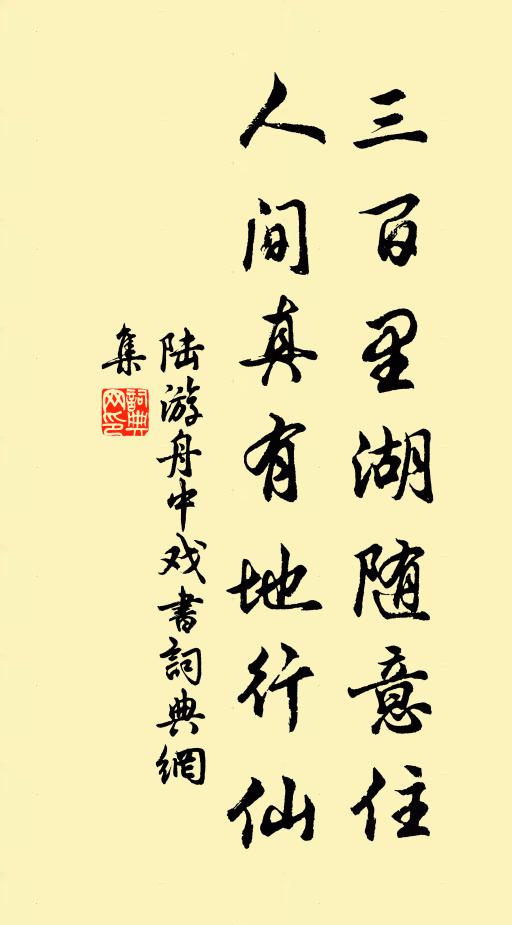 三百里湖随意住
人间真有地行仙
陆游舟中戏书詞典網
集
詞典
网印